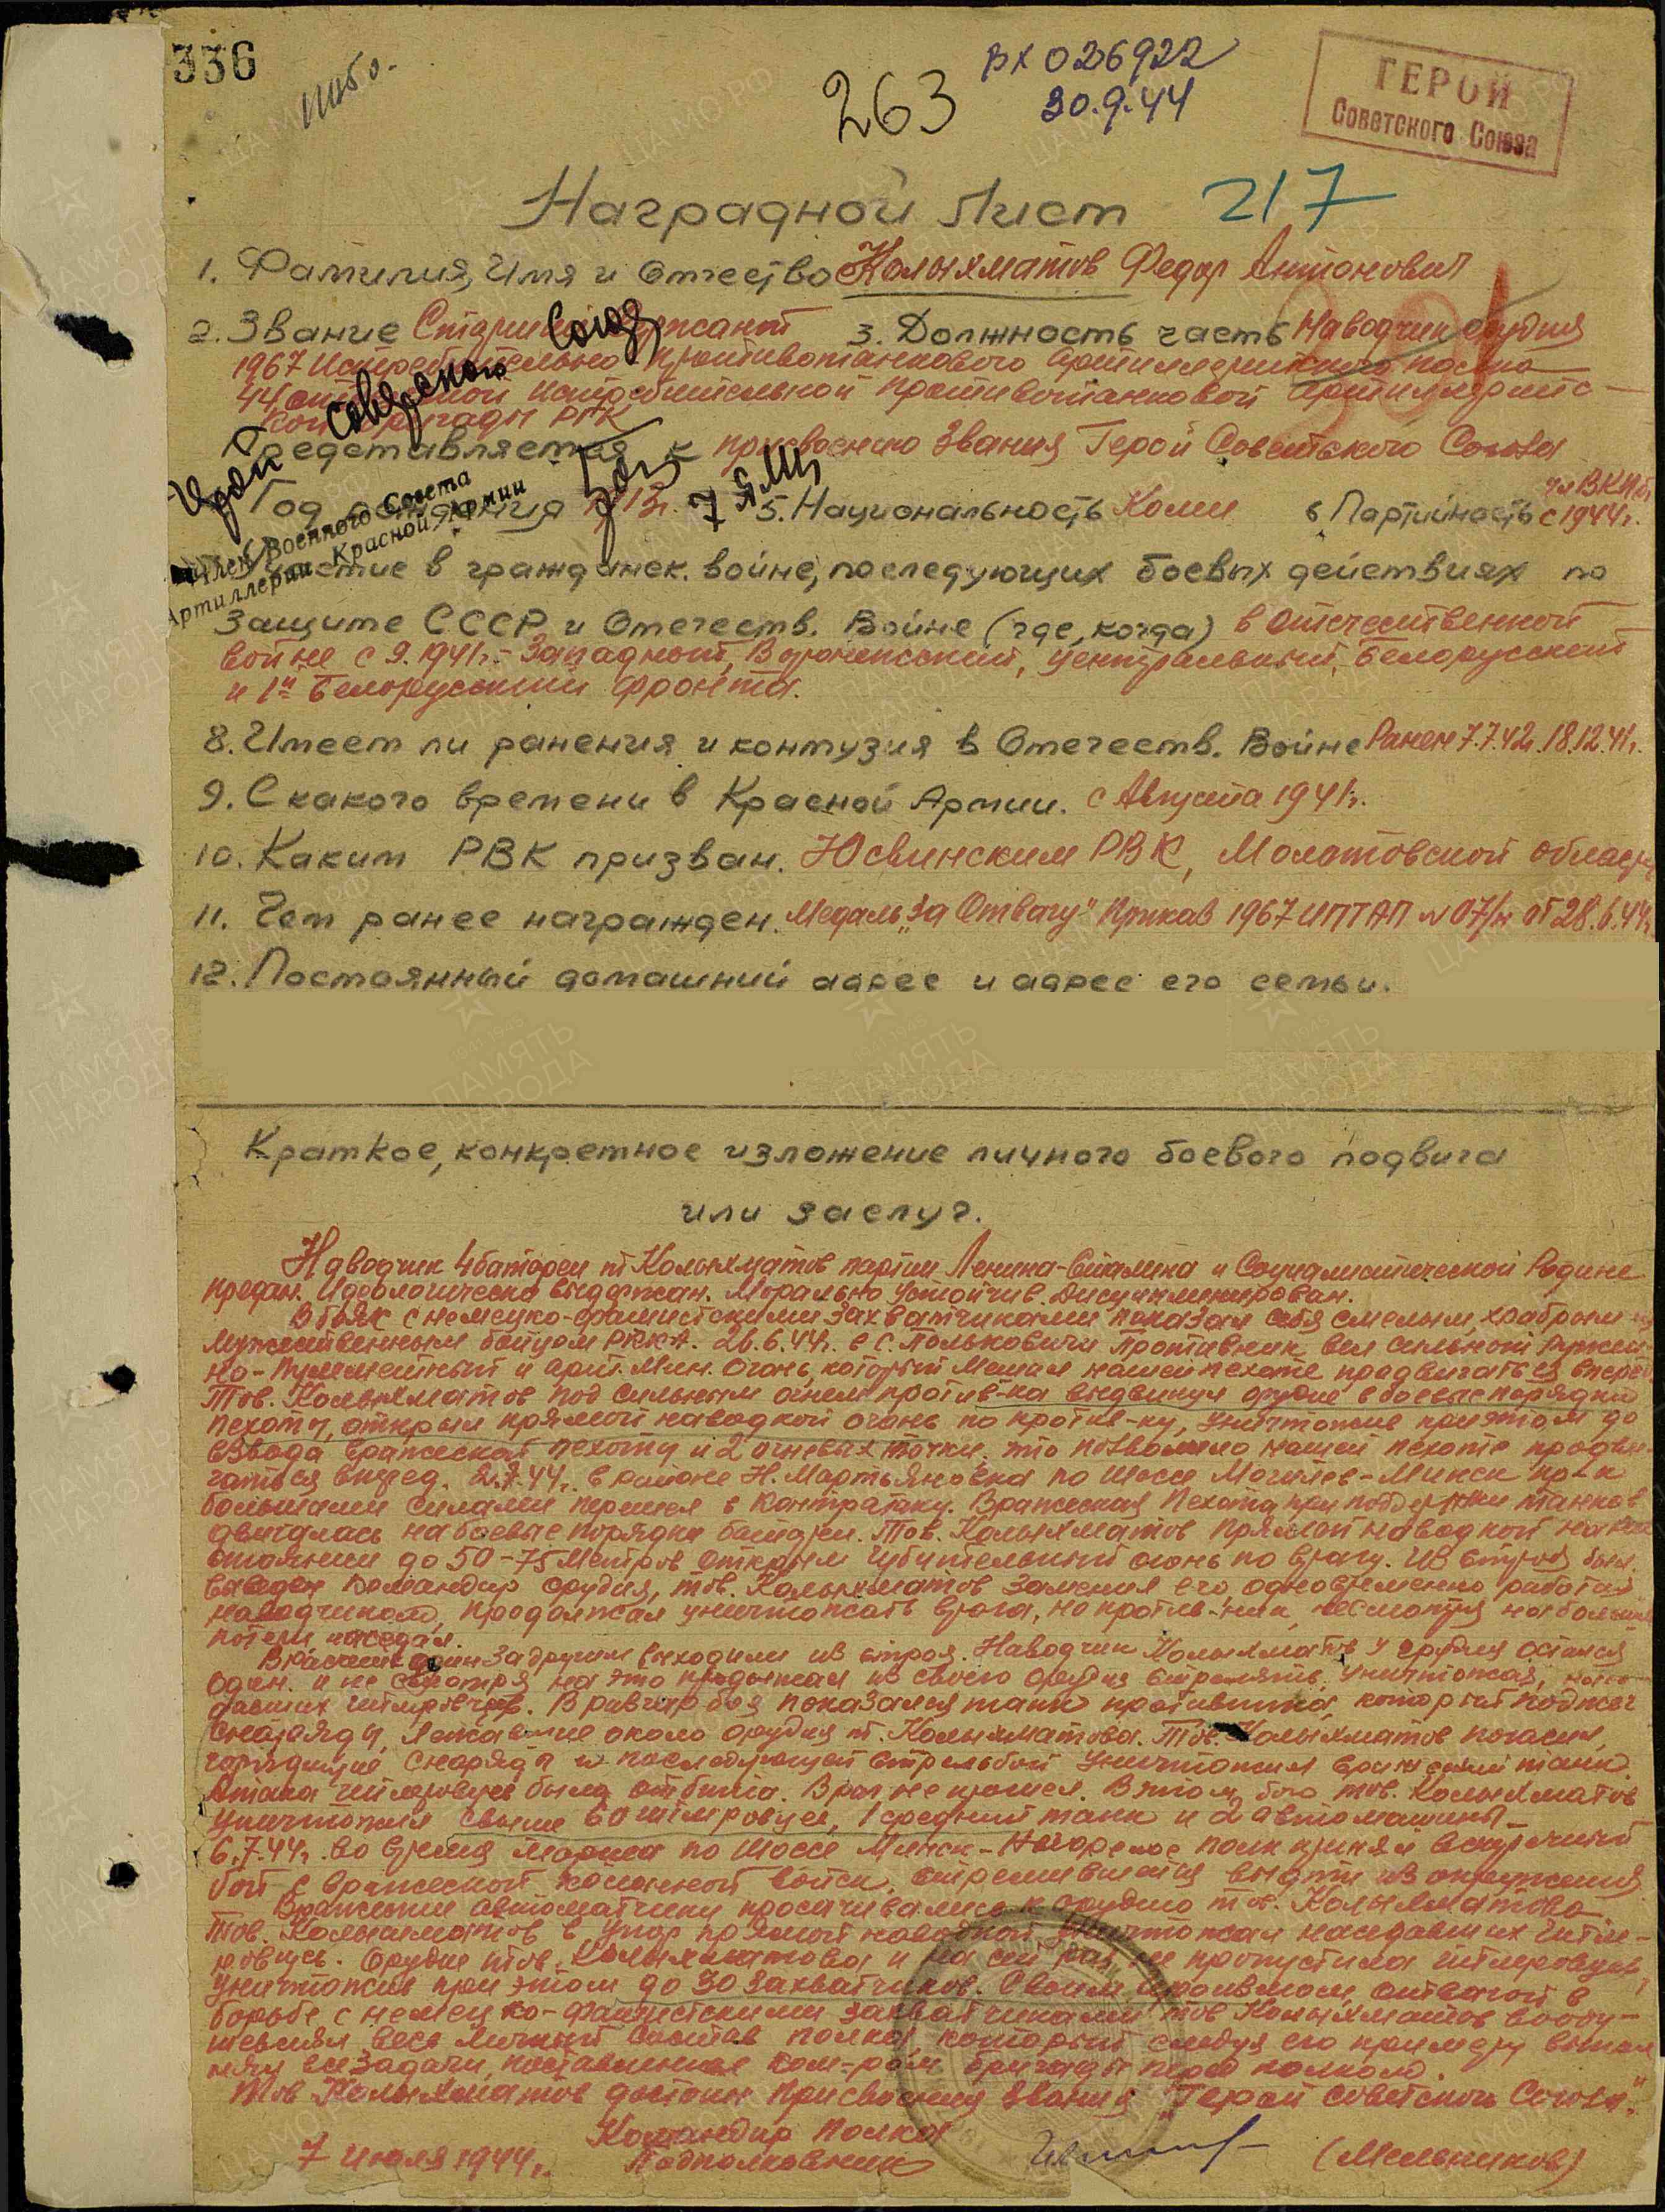 336
вх 026922
30.9.44
263
ГЕРОЙ
Советского Союза
217
Наградной Лист
1. Фамилия, Имя и Отчество Колыхматов Федор Антонович
2. Звание Старший сержант 3. Должность часть Наводчик орудия
1967 Истребительно Противотанкового Артиллерийского полка
44 истребительной противотанковой Артиллерийс-
кой бригады РГК
Представляется к присвоению Звания Герой Советского Союза
Год рождения 1913г. 5. Национальность Коми 6 Партийность чл ВКП(б) с 1944г.
Член Военного Совета
Артиллерии Красной Армии
Участие в гражданск. войне, последующих боевых действиях по
Защите СССР и Отечеств. Войне (где, когда) в Отечественной
войне с 9.1941г.- Западный, Воронежский, Центральный, Белорусский
и 1й Белорусский фронта.
8. Имеет ли ранения и контузия в Отечеств. Войне Ранен 7.7.42г. 18.12.41г.
9. С какого времени в Красной Армии. с Августа 1941г.
10. Каким РВК призван. Юсвинским РВК, Молотовской области
11. Чем ранее награжден. Медаль „За Отвагу" Приказ 1967 ИПТАП №07/н от 28.6.44г.
12. Постоянный домашний адрес и адрес его семьи.
Краткое, конкретное изложение личного боевого подвига
или заслуг.
Наводчик 4 батареи т Колыхматов партии Ленина-Сталина и Социалистической Родине
предан. Идеологически выдержан. Морально устойчив. Дисциплинирован.
В боях с немецко-фашистскими захватчиками показал себя смелым, храбрым
мужественным бойцом РККА. 26.6.44г. в с. Польковичи Противник вел сильный Ружей-
но-Пулеметный и арт. Мин. Огонь, который мешал нашей пехоте продвигаться вперед
Тов. Колыхматов под сильным огнем против-ка выдвинул орудие в боевые порядки
пехоты, открыл прямой наводкой огонь по против-ку, уничтожив при этом до
взвода вражеской пехоты и 2 огневых точки, что позволило нашей пехоте продви-
гаться вперед. 2.7.44г. в районе Н. Мартьяновка по шоссе Могилев-Минск пр-к
большими силами перешел в контратаку. Вражеская Пехота при поддержке танков
двигалась на боевые порядки батареи. Тов. Колыхматов прямой наводкой на рас
стоянии до 50-75 Метров открыл губительный огонь по врагу. Из строя был
выведен Командир орудия, тов. Колыхматов заменил его одновременно работая
наводчиком, продолжал уничтожать врага, но против-ник, несмотря на большие
потери, наседал.
один за другим выходили из строя. Наводчик Колыхматов у орудия остался
один. и не смотря на это продолжал из своего орудия стрелять, уничтожая, насе-
давших гитлеровцев. В разгар боя показался танк противника, который поджег
снаряды, лежавшие около орудия т. Колыхматова. Тов. Колыхматов погасил,
горящие снаряды и последующей стрельбой уничтожил вражеский танк.
Атака гитлеровцев была отбита. Враг не прошел. В этом бою тов. Колыхматов
уничтожил свыше 60 гитлеровцев, 1 средний танк и 2 автомашины.
6.7.44г. во время марша по шоссе Минск-Негорелое полк принял встречный
бой с вражеской колонной войск, стремившейся выйти из окружения
Вражеские автоматчики просачивались к орудию тов. Колыхматова
Тов. Колыхматов в упор прямой наводкой уничтожал наседавших гитле-
ровцев. Орудие тов. Колыхматова и на сей раз не пропустило гитлеровцев,
уничтожив при этом до 30 захватчиков. Своим героизмом, отвагой в
борьбе с немецко-фашистскими захватчиками тов Колыхматов вооду-
шевлял весь личный состав полка, который следуя его примеру выпол
нял все задачи, поставленные ком-ром бригады перед полком.
Тов. Колыхматов достоин Присвоения Звания „Герой Советского Союза".
Командир полка
7 июля 1944г. Подполковник (Мельников)